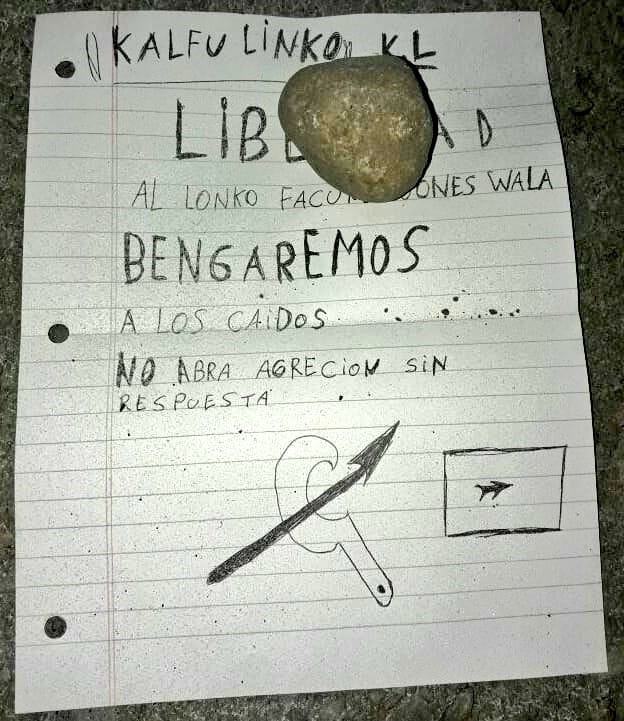 "KALFULINKO" KL
LIB AD
AL LONKO JONES WALA
BENGAREMOS
A LOS CAIDOS
NO ABRA AGRECION SIN
RESPUESTA